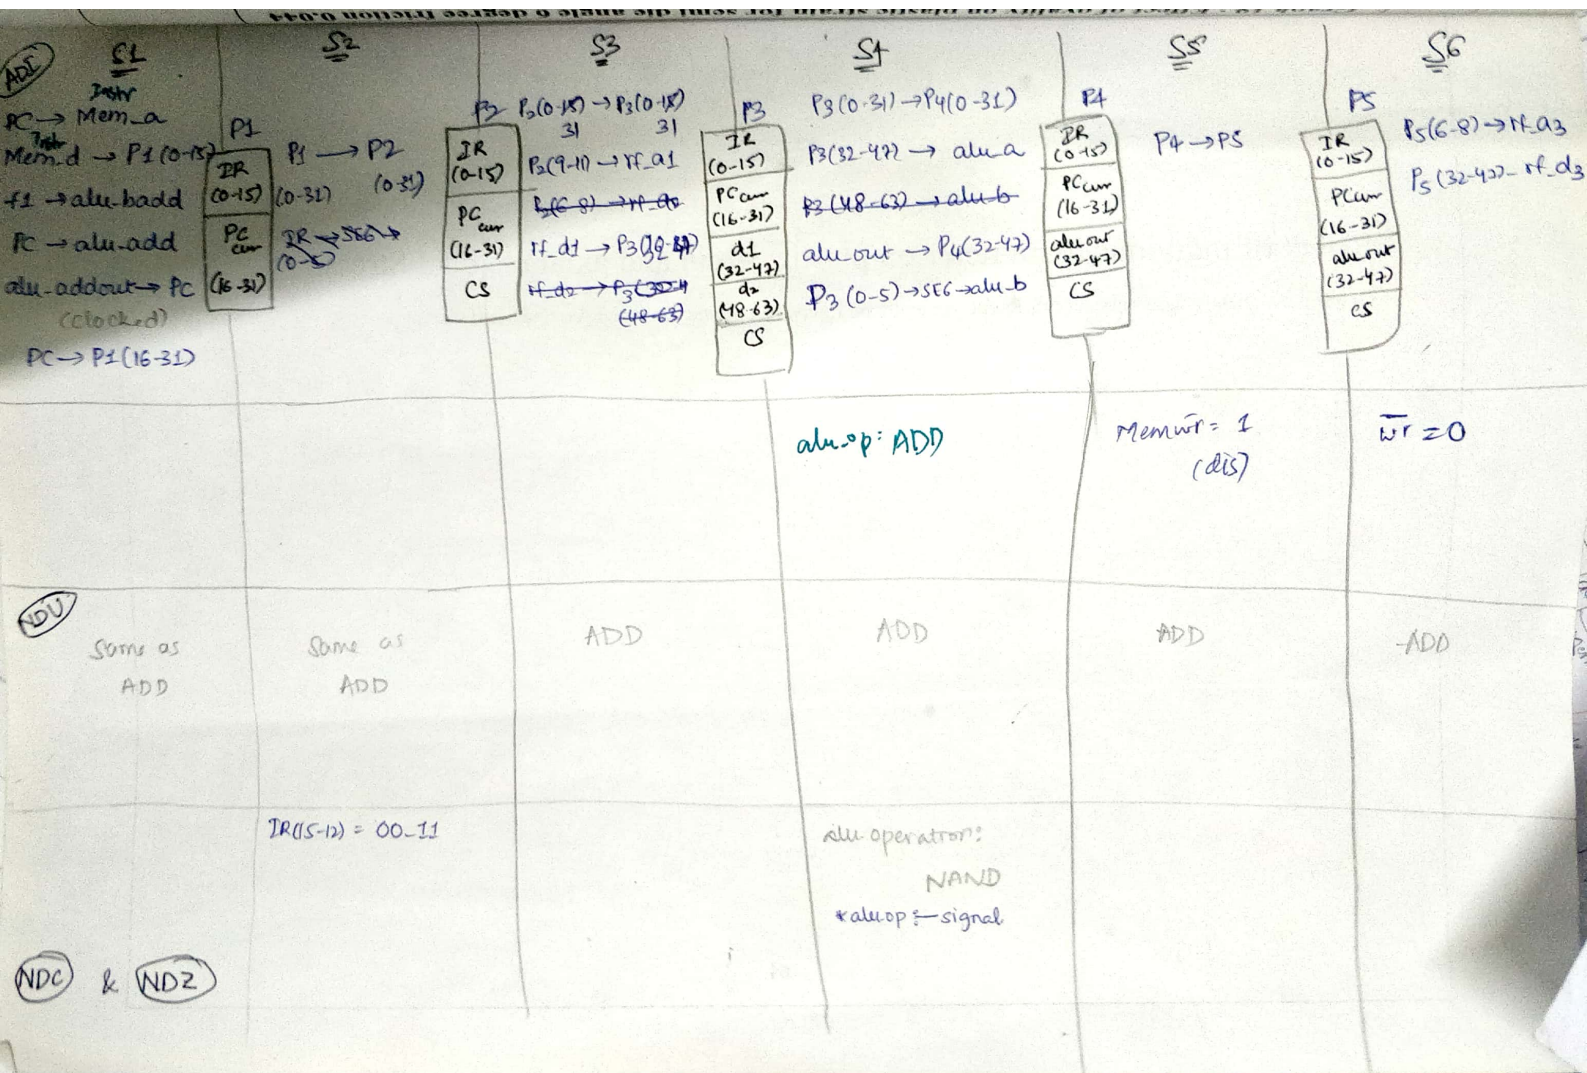 ADI
S1
Instr
PC → Mem_a
Instr
Mem_d → P1(0-15)
+1 → alu-badd
PC → alu-add
alu-addout → PC
(clocked)
PC → P1(16-31)
P1
IR
(0-15)
PC
curr
(16-31)
S2
P1 → P2
(0-31) (0-31)
IR → SE6 →
(0-5)
P2
IR
(0-15)
PC
curr
(16-31)
CS
S3
P2(0-15) → P3(0-15)
31 31
P2(9-11) → rf_a1
P2(6-8) → rf_a2
rf_d1 → P3(32-47)
rf_d2 → P3
(48-63)
P3
IR
(0-15)
PCcurr
(16-31)
d1
(32-47)
d2
(48-63)
CS
S4
P3(0-31) → P4(0-31)
P3(32-47) → alu_a
P3(48-63) → alu-b
alu_out → P4(32-47)
P3(0-5) → SE6 → alu_b
P4
IR
(0-15)
PCcurr
(16-31)
alu out
(32-47)
CS
S5
P4 → P5
P5
IR
(0-15)
PCcurr
(16-31)
alu out
(32-47)
CS
S6
P5(6-8) → rf_a3
P5(32-47) - rf_d3
alu-op: ADD
Mem w̄r̄ = 1
(dis)
w̄r̄ = 0
NDU
Same as
ADD
Same as
ADD
ADD
ADD
ADD
ADD
IR(15-12) = 00_11
alu operation:
NAND
* alu-op :- signal
NDC & NDZ